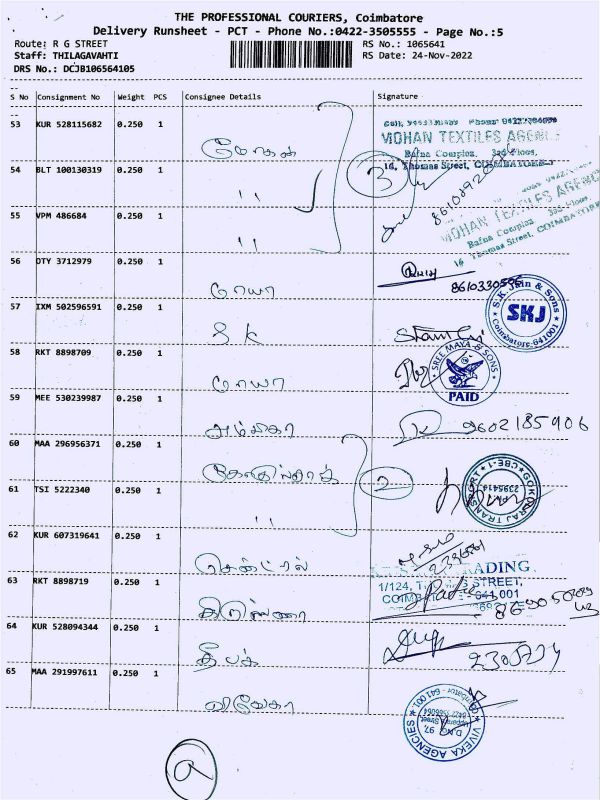 THE PROFESSIONAL COURIERS, Coimbatore
Delivery Runsheet - PCT - Phone No.:0422-3505555 - Page No.:5
Route: R G STREET
RS No.: 1065641
Staff: THILAGAVAHTI
RS Date: 24-Nov-2022
DRS No.: DCJB106564105
S No Consignment No Weight PCS Consignee Details Signature
53 KUR 528115682 0.250 1
MOHAN TEXTILES AGENCY
Bafna Complex, 3rd Floor,
16, Thomas Street, COIMBATORE-1
மோகன்
3
54 BLT 100130319 0.250 1
"
55 VPM 486684 0.250 1
MOHAN TEXTILES AGENCY
Bafna Complex, 3rd Floor,
16 Thomas Street, COIMBATORE
"
56 DTY 3712979 0.250 1
மாயா
57 IXM 502596591 0.250 1
S.K. Jain & Sons
SKJ
Coimbatore-641001
S K
58 RKT 8898709 0.250 1
SREE MAYA & SONS
PAID
மாயா
59 MEE 530239987 0.250 1
அம்பிகா
9602185906
60 MAA 296956371 0.250 1
2
GOKULRAJ TRANSPORT
CBE-1
61 TSI 5222340 0.250 1
"
62 KUR 607319641 0.250 1
சென்ட்ரல்
TRADING
STREET,
63 RKT 8898719 0.250 1
கிருஷ்ணா
64 KUR 528094344 0.250 1
தீபக்
65 MAA 291997611 0.250 1
விவேகா
VIVEKA AGENCIES
D.NO. 97,
a